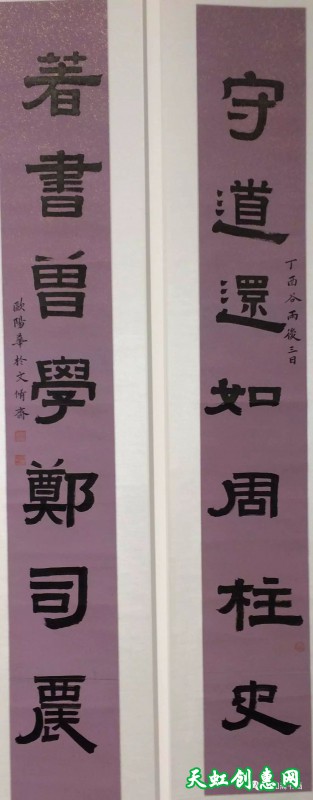 守道還如周柱史
丁酉谷雨後三日
著書曾學鄭司農
歐陽華於文俯齋
天虹创意网